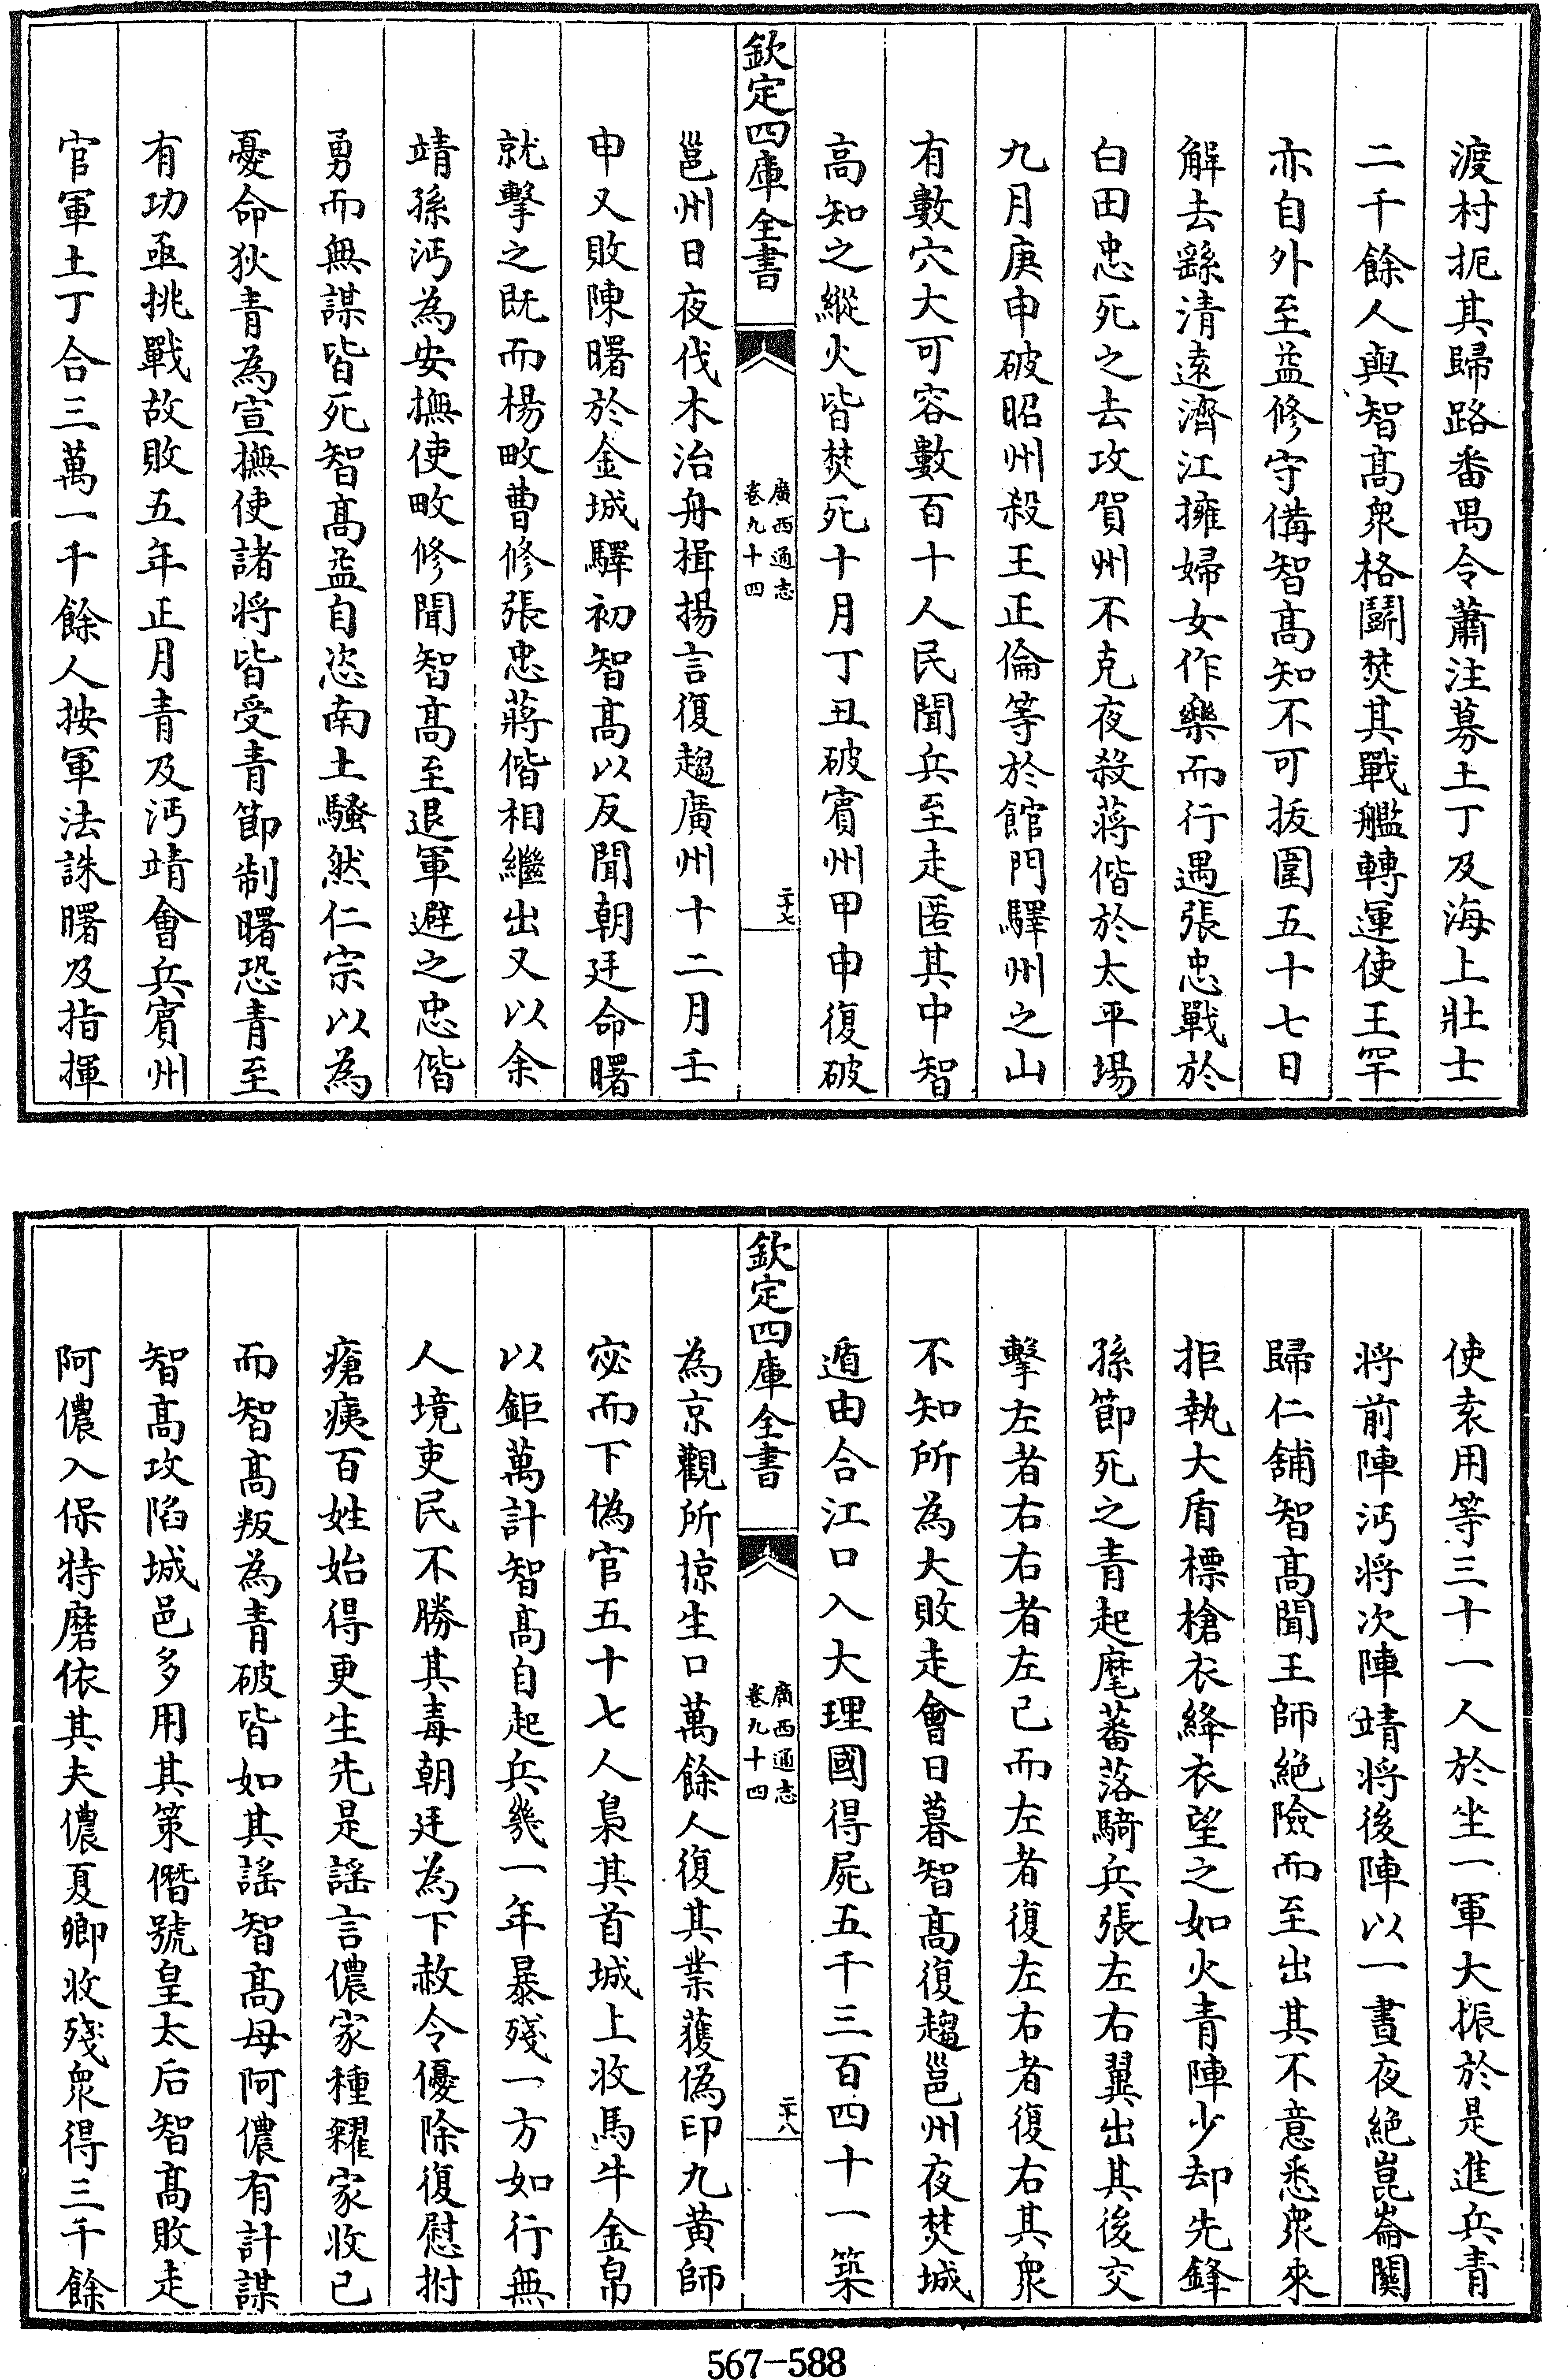 渡村扼其歸路番禺令蕭注募土丁及海上壯士
二千餘人與智高衆格鬬焚其戰艦轉運使王罕
亦自外至益修守備智高知不可拔圍五十七日
解去繇清遠濟江擁婦女作樂而行遇張忠戰於
白田忠死之去攻賀州不克夜殺蔣偕於太平場
九月庚申破昭州殺王正倫等於館門驛州之山
有數穴大可容數百十人民聞兵至走匿其中智
高知之縱火皆焚死十月丁丑破賓州甲申復破
欽定四庫全書
廣西通志
卷九十四
二十七
邕州日夜伐木治舟楫揚言復趨廣州十二月壬
申又敗陳曙於金城驛初智高以反聞朝廷命曙
就擊之既而楊畋曹修張忠蔣偕相繼出又以余
靖孫沔為安撫使畋修聞智高至退軍避之忠偕
勇而無謀皆死智高益自恣南土騷然仁宗以為
憂命狄青為宣撫使諸將皆受青節制曙恐青至
有功亟挑戰故敗五年正月青及沔靖會兵賓州
官軍土丁合三萬一千餘人按軍法誅曙及指揮
使袁用等三十一人於坐一軍大振於是進兵青
將前陣沔將次陣靖將後陣以一晝夜絶崑崙關
歸仁舖智高聞王師絶險而至出其不意悉衆來
拒執大盾標槍衣絳衣望之如火青陣少却先鋒
孫節死之青起麾蕃落騎兵張左右翼出其後交
擊左者右右者左已而左者復左右者復右其衆
不知所為大敗走會日暮智高復趨邕州夜焚城
遁由合江口入大理國得屍五千三百四十一築
欽定四庫全書
廣西通志
卷九十四
二十八
為京觀所掠生口萬餘人復其業獲偽印九黄師
宓而下偽官五十七人梟其首城上收馬牛金帛
以鉅萬計智高自起兵幾一年暴殘一方如行無
人境吏民不勝其毒朝廷為下赦令優除復慰拊
瘡痍百姓始得更生先是謡言儂家種糴家收已
而智高叛為青破皆如其謡智高母阿儂有計謀
智高攻陷城邑多用其策僭號皇太后智高敗走
阿儂入保特磨依其夫儂夏卿收殘衆得三千餘
567-588